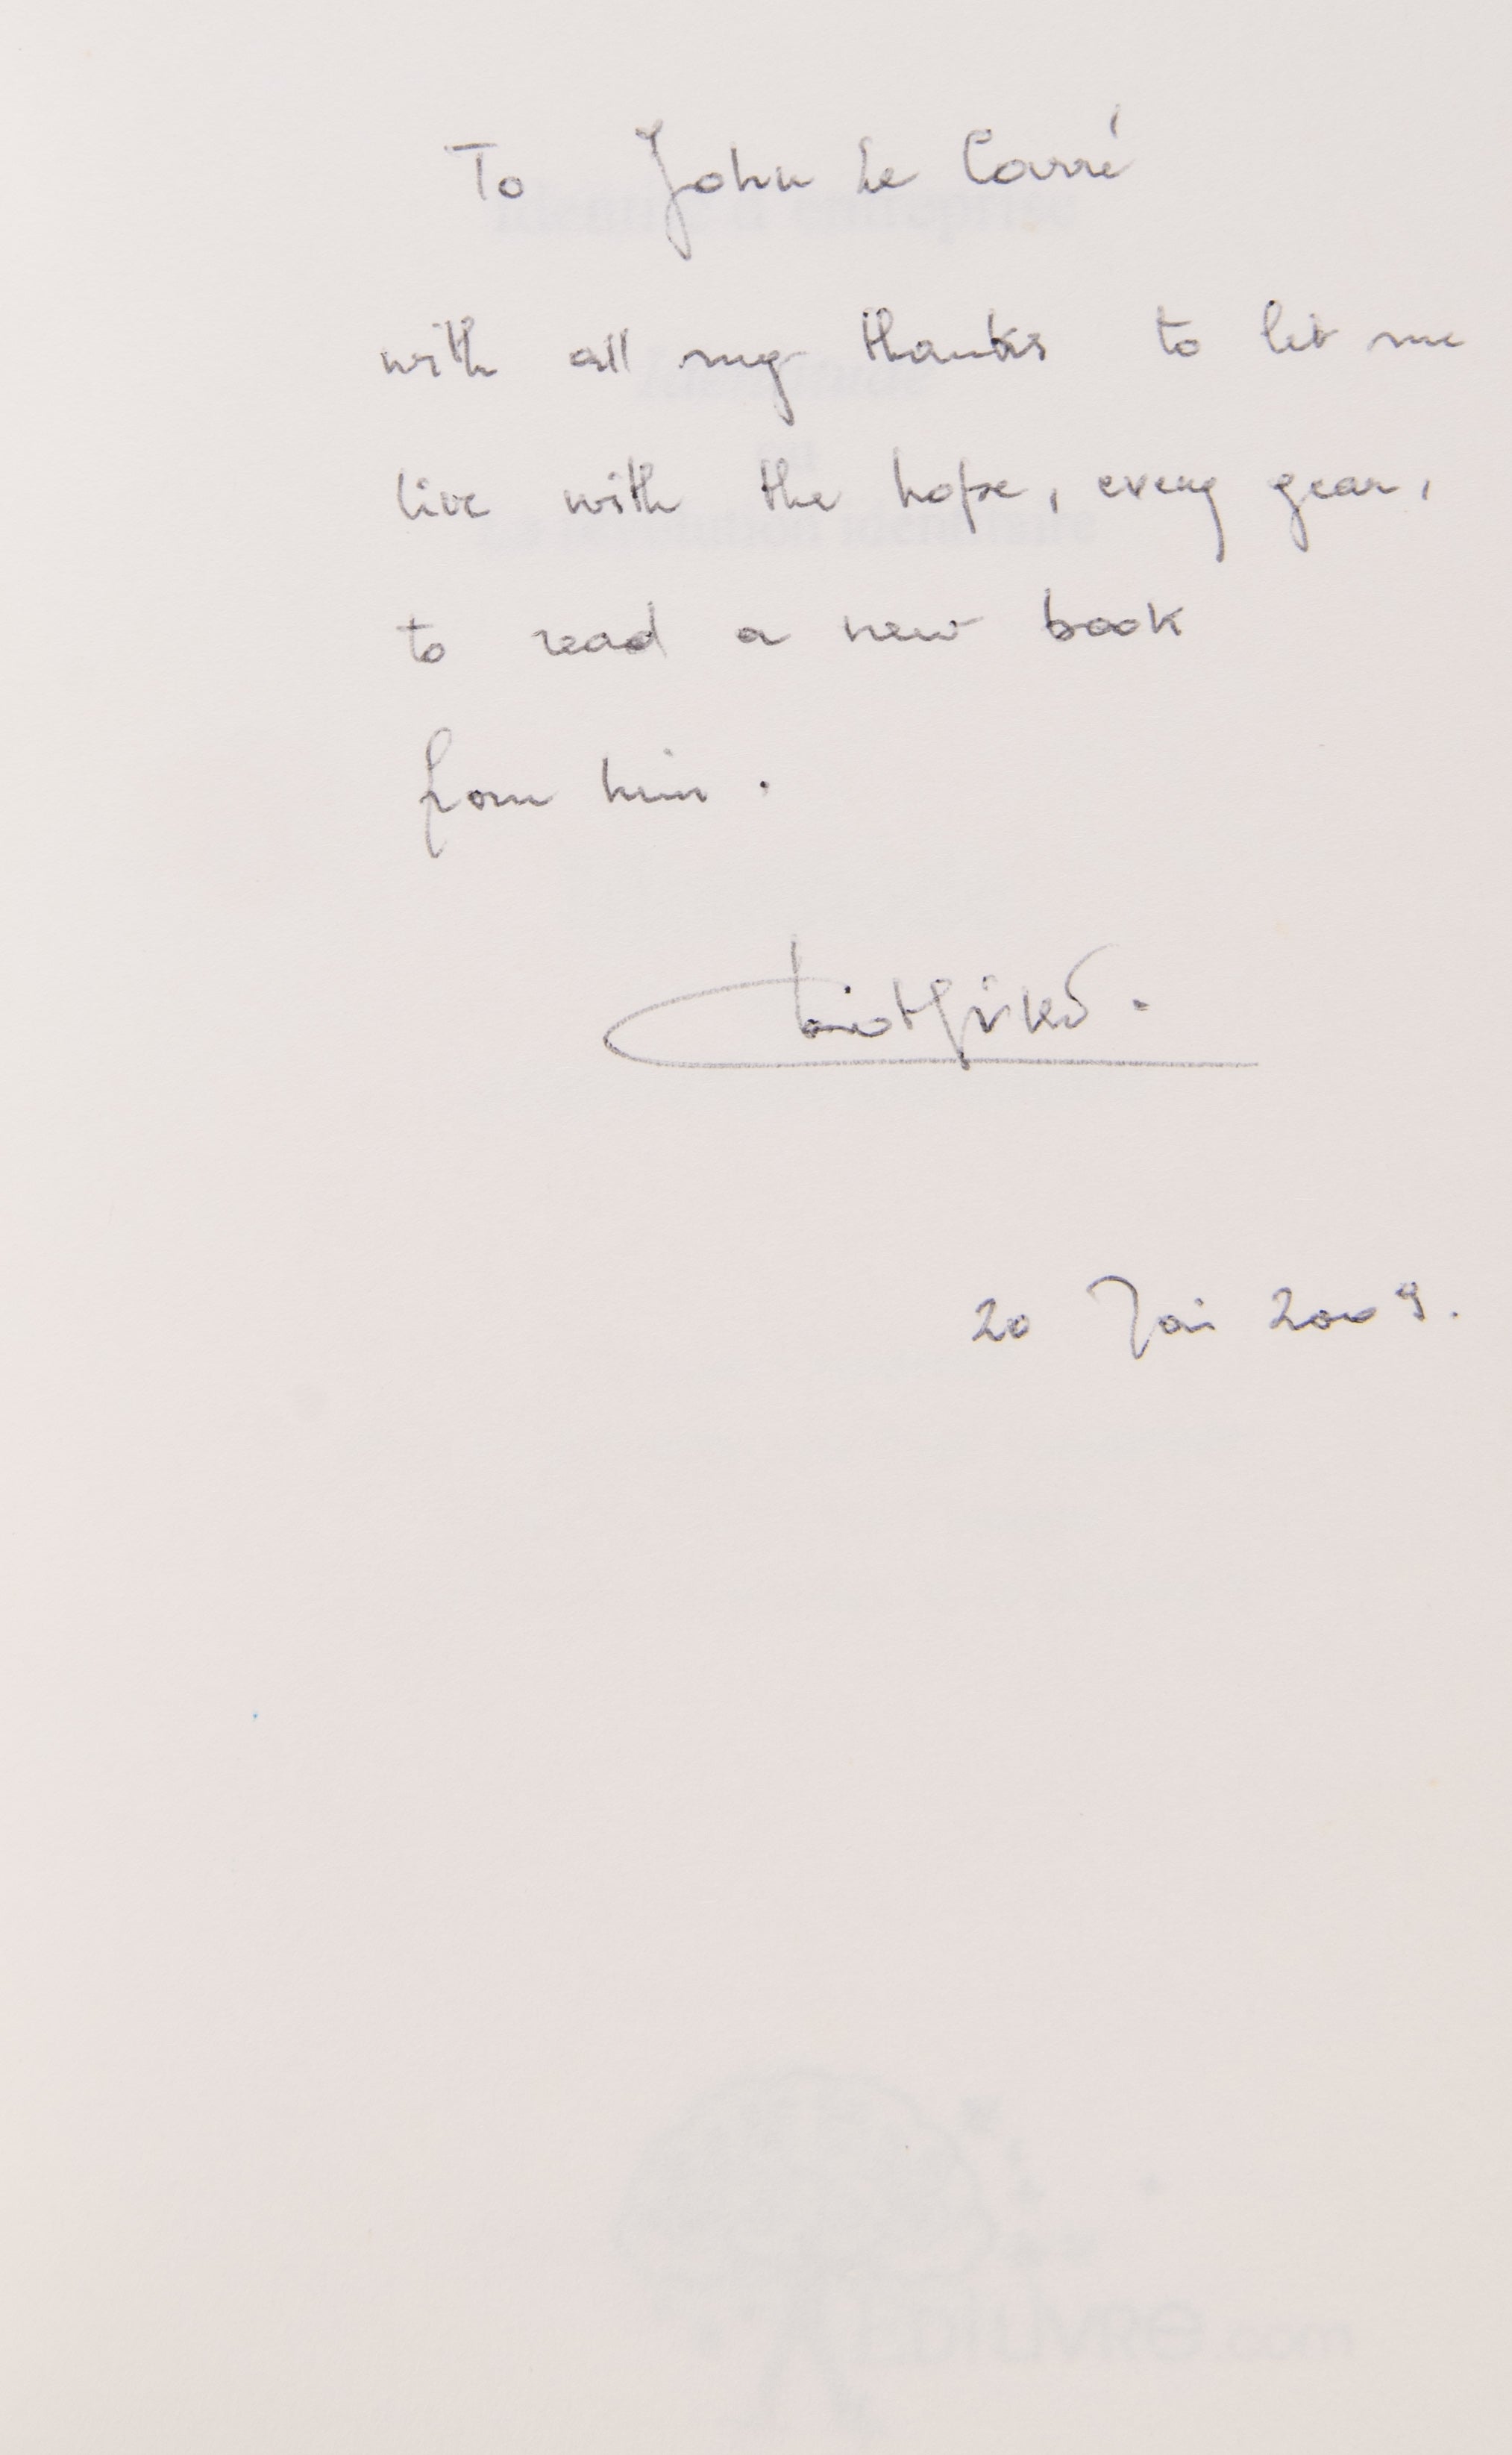 To John Le Carré
with all my thanks to let me
live with the hope, every year,
to read a new book
from him.
20 Mai 2009.
EDILIVRE.com